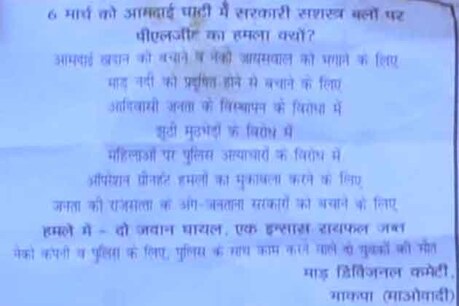 6 मार्च को आमदाई घाटी में सरकारी सशस्त्र बलों पर
पीएलजीए का हमला क्यों?
आमदाई खदान को बचाने व नेको जायसवाल को भगाने के लिए
माड़ नदी को प्रदूषित होने से बचाने के लिए
आदिवासी जनता के विस्थापन के विरोध में
झूठी मुठभेड़ों के विरोध में
महिलाओं पर पुलिस अत्याचारों के विरोध में
ऑपरेशन ग्रीनहंट हमलों का मुकाबला करने के लिए
जनता की राजसत्ता के अंग-जनताना सरकारों को बचाने के लिए
हमले में - दो जवान घायल, एक इन्सास रायफल जब्त
नेको कंपनी व पुलिस के लिए, पुलिस के साथ काम करने वाले दो युवकों की मौत
माड़ डिविजनल कमेटी,
भाकपा (माओवादी)